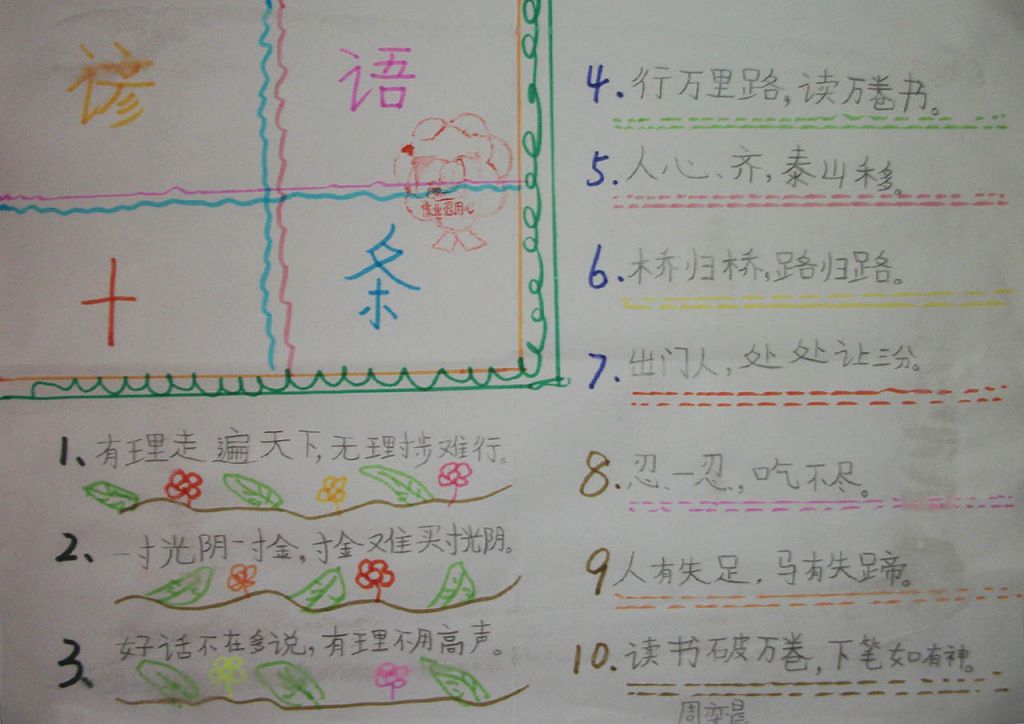 谚语
十条
作业很用心
1、有理走遍天下,无理寸步难行。
2、一寸光阴一寸金,寸金难买寸光阴。
3、好话不在多说,有理不用高声。
4.行万里路,读万卷书。
5.人心、齐,泰山移。
6.桥归桥,路归路。
7.出门人,处处让三分。
8.忍一忍,吃不尽。
9人有失足,马有失蹄。
10.读书破万卷,下笔如有神。
周